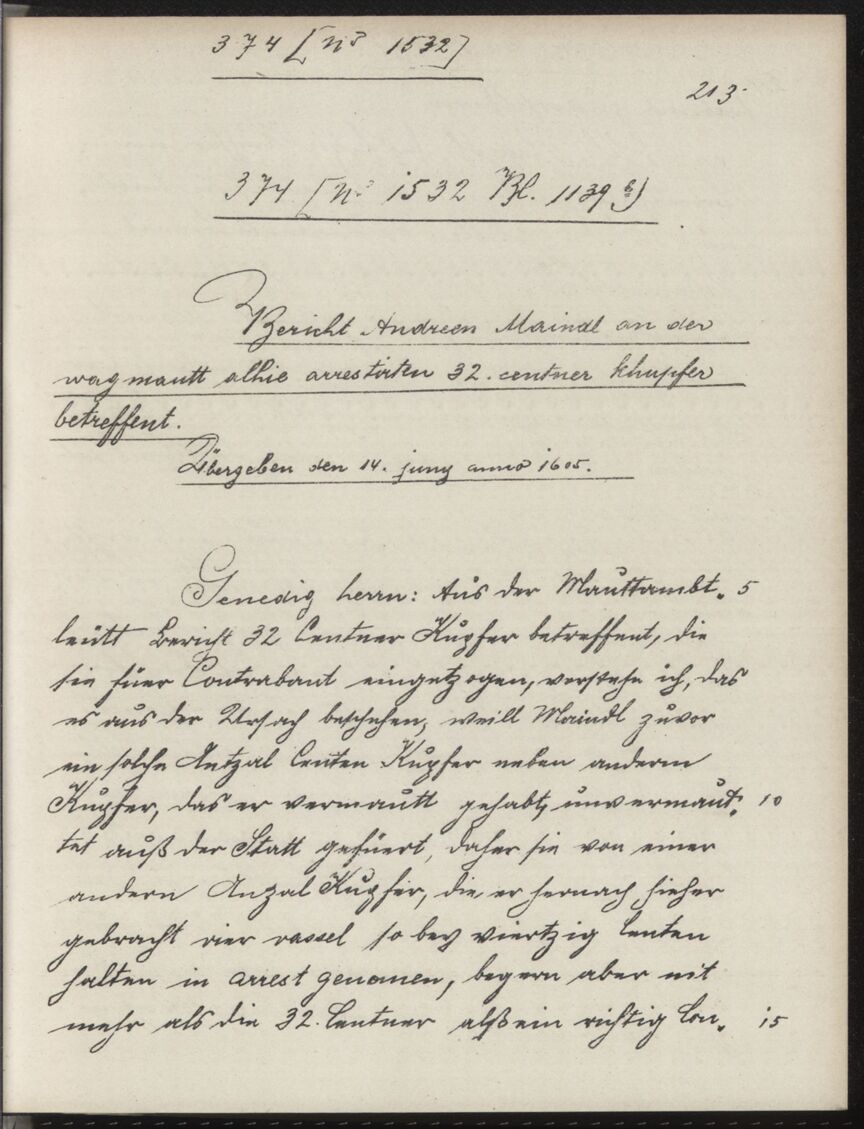 374 [No 1532]
213.
374 [No 1532 Bl. 1139 b)
Bericht Andreen Maindl an der
wagmautt alhie arrestirten 32. centner khupfer
betreffent.
Übergeben den 14. juny anno 1605.
Genedig herrn: Aus der Mauttambt- 5
leütt Bericht 32 Centner Kupfer betreffent, die
sie füer Contrabant eingetzogen, verstehe ich, das
es aus der Ursach beschehen, weill Maindl zuvor
ein solche Antzal Centen Kupfer neben anderm
Kupfer, das er vermautt gehabt, unvermaut- 10
tet auß der Statt gefüert, daher sie von einer
andern Anzal Kupfer, die er hernach hieher
gebracht vier vassel so bey viertzig Centen
halten in arrest genomen, begern aber nit
mehr als die 32. Centner alß ein richtig Con- 15